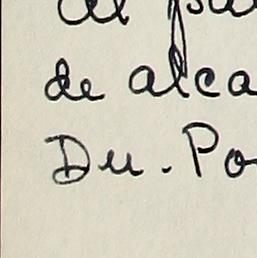 de alca
Du. Po